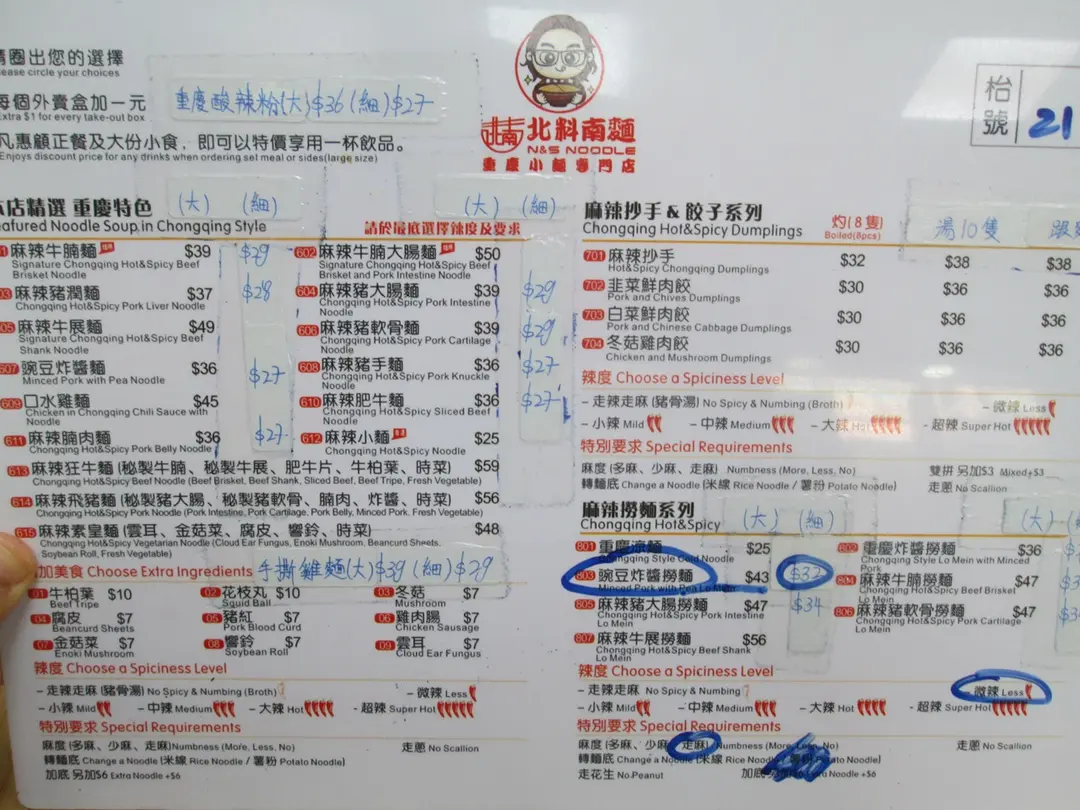 請圈出您的選擇
ease circle your choices
每個外賣盒加一元
Extra $1 for every take-out box
重慶酸辣粉(大)$36(細)$27
凡惠顧正餐及大份小食，即可以特價享用一杯飲品。
Enjoys discount price for any drinks when ordering set meal or sides(large size)
北料南麵
N&S NOODLE
重慶小麵專門店
枱號 21
本店精選 重慶特色
(大) (細)
(大) (細)
eatured Noodle Soup in Chongqing Style
請於最底選擇辣度及要求
麻辣牛腩麵 $39 $29
Signature Chongqing Hot&Spicy Beef
Brisket Noodle
602 麻辣牛腩大腸麵 $50
Signature Chongqing Hot&Spicy Beef
Brisket and Pork Intestine Noodle
03 麻辣豬潤麵 $37 $28
Chongqing Hot&Spicy Pork Liver Noodle
604 麻辣豬大腸麵 $39 $29
Chongqing Hot&Spicy Pork Intestine
Noodle
05 麻辣牛展麵 $49
Signature Chongqing Hot&Spicy Beef
Shank Noodle
606 麻辣豬軟骨麵 $39 $29
Chongqing Hot&Spicy Pork Cartilage
Noodle
607 豌豆炸醬麵 $36 $27
Minced Pork with Pea Noodle
608 麻辣豬手麵 $36 $27
Chongqing Hot&Spicy Pork Knuckle
Noodle
609 口水雞麵 $45
Chicken in Chongqing Chili Sauce with
Noodle
610 麻辣肥牛麵 $36 $27
Chongqing Hot&Spicy Sliced Beef
Noodle
611 麻辣腩肉麵 $36 $27
Chongqing Hot&Spicy Pork Belly Noodle
612 麻辣小麵 $25
Chongqing Hot&Spicy Noodle
613 麻辣狂牛麵 (秘製牛腩、秘製牛展、肥牛片、牛柏葉、時菜) $59
Chongqing Hot&Spicy Beef Noodle (Beef Brisket, Beef Shank, Sliced Beef, Beef Tripe, Fresh Vegetable)
614 麻辣飛豬麵 (秘製豬大腸、秘製豬軟骨、腩肉、炸醬、時菜) $56
Chongqing Hot&Spicy Pork Noodle (Pork Intestine, Pork Cartilage, Pork Belly, Minced Pork, Fresh Vegetable)
615 麻辣素皇麵 (雲耳、金菇菜、腐皮、響鈴、時菜) $48
Chongqing Hot&Spicy Vegetarian Noodle (Cloud Ear Fungus, Enoki Mushroom, Beancurd Sheets,
Soybean Roll, Fresh Vegetable)
加美食 Choose Extra Ingredients
手撕雞麵(大)$39(細)$29
01 牛柏葉 $10
Beef Tripe
02 花枝丸 $10
Squid Ball
03 冬菇 $7
Mushroom
04 腐皮 $7
Beancurd Sheets
05 豬紅 $7
Pork Blood Curd
06 雞肉腸 $7
Chicken Sausage
07 金菇菜 $7
Enoki Mushroom
08 響鈴 $7
Soybean Roll
09 雲耳 $7
Cloud Ear Fungus
辣度 Choose a Spiciness Level
- 走辣走麻 (豬骨湯) No Spicy & Numbing (Broth)
- 微辣 Less
- 小辣 Mild - 中辣 Medium - 大辣 Hot - 超辣 Super Hot
特別要求 Special Requirements
麻度 (多麻、少麻、走麻)Numbness (More, Less, No) 走蔥 No Scallion
轉麵底 Change a Noodle (米線 Rice Noodle / 薯粉 Potato Noodle)
加底 另加$6 Extra Noodle +$6
麻辣抄手 & 餃子系列
Chongqing Hot&Spicy Dumplings
灼(8隻)
Boiled(8pcs)
湯10隻
701 麻辣抄手 $32 $38 $38
Hot&Spicy Chongqing Dumplings
702 韮菜鮮肉餃 $30 $36 $36
Pork and Chives Dumplings
703 白菜鮮肉餃 $30 $36 $36
Pork and Chinese Cabbage Dumplings
704 冬菇雞肉餃 $30 $36 $36
Chicken and Mushroom Dumplings
辣度 Choose a Spiciness Level
- 走辣走麻 (豬骨湯) No Spicy & Numbing (Broth)
- 微辣 Less
- 小辣 Mild - 中辣 Medium - 大辣 Hot - 超辣 Super Hot
特別要求 Special Requirements
麻度 (多麻、少麻、走麻) Numbness (More, Less, No) 雙拼 另加$3 Mixed+$3
轉麵底 Change a Noodle (米線 Rice Noodle / 薯粉 Potato Noodle) 走蔥 No Scallion
麻辣撈麵系列
(大) (細)
(大)
Chongqing Hot&Spicy
801 重慶涼麵 $25
Chongqing Style Cold Noodle
802 重慶炸醬撈麵 $36
Chongqing Style Lo Mein with Minced
Pork
803 豌豆炸醬撈麵 $43 $32
Minced Pork with Pea Lo Mein
804 麻辣牛腩撈麵 $47
Chongqing Hot&Spicy Beef Brisket
Lo Mein
805 麻辣豬大腸撈麵 $47 $34
Chongqing Hot&Spicy Pork Intestine
Lo Mein
806 麻辣豬軟骨撈麵 $47
Chongqing Hot&Spicy Pork Cartilage
Lo Mein
807 麻辣牛展撈麵 $56
Chongqing Hot&Spicy Beef Shank
Lo Mein
辣度 Choose a Spiciness Level
- 走辣走麻 No Spicy & Numbing
- 微辣 Less
- 小辣 Mild - 中辣 Medium - 大辣 Hot - 超辣 Super Hot
特別要求 Special Requirements
麻度 (多麻、少麻、走麻) Numbness (More, Less, No) 走蔥 No Scallion
轉麵底 Change a Noodle (米線 Rice Noodle / 薯粉 Potato Noodle)
走花生 No Peanut 加底 另加$6 Extra Noodle +$6